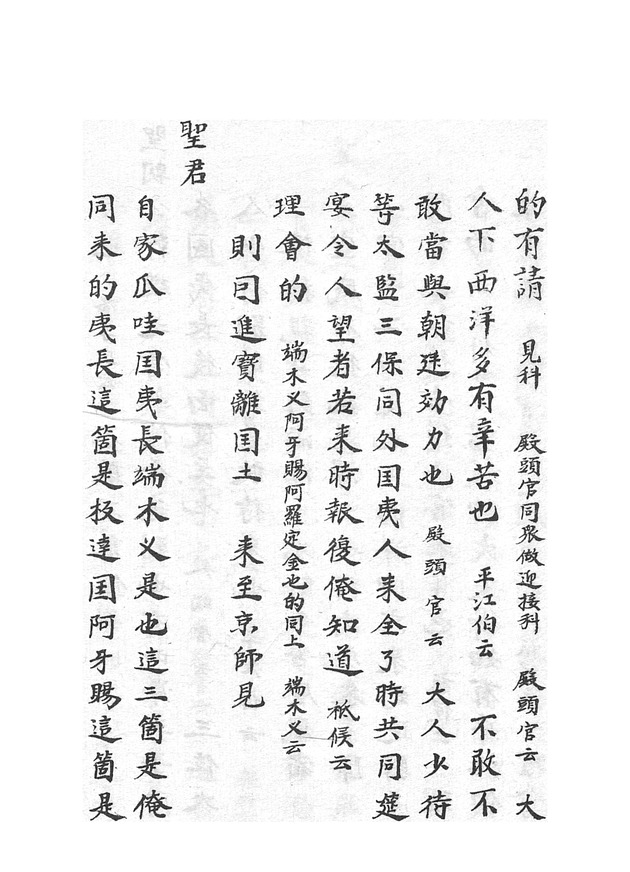 的有請 見科 殿頭官同衆做迎接科 殿頭官云 大
人下西洋多有辛苦也 平江伯云 不敢不
敢當與朝廷効力也 殿頭官云 大人少待
等太監三保同外国夷人来全了時共同筵
宴令人望者若来時報復俺知道 祗候云
理會的 端木义阿牙賜阿羅定金也的同上 端木义云
則囙進寶離囯土 来至京師見
聖君
自家瓜哇囯夷長端木义是也這三箇是俺
同来的夷長這箇是扳達囯阿牙賜這箇是